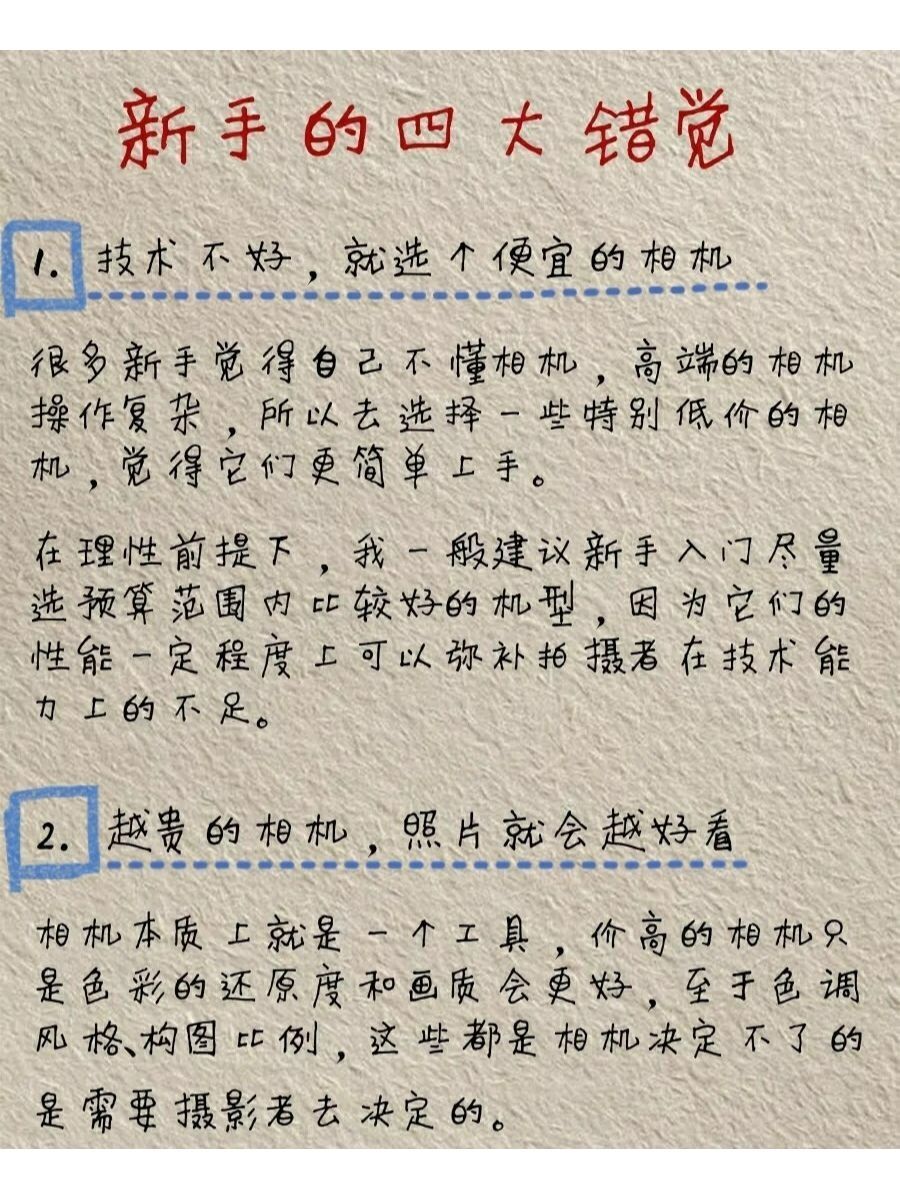 新手的四大错觉
1. 技术不好，就选个便宜的相机
很多新手觉得自己不懂相机，高端的相机
操作复杂，所以去选择一些特别低价的相
机，觉得它们更简单上手。
在理性前提下，我一般建议新手入门尽量
选预算范围内比较好的机型，因为它们的
性能一定程度上可以弥补拍摄者在技术能
力上的不足。
2. 越贵的相机，照片就会越好看
相机本质上就是一个工具，价高的相机只
是色彩的还原度和画质会更好，至于色调
风格、构图比例，这些都是相机决定不了的
是需要摄影者去决定的。